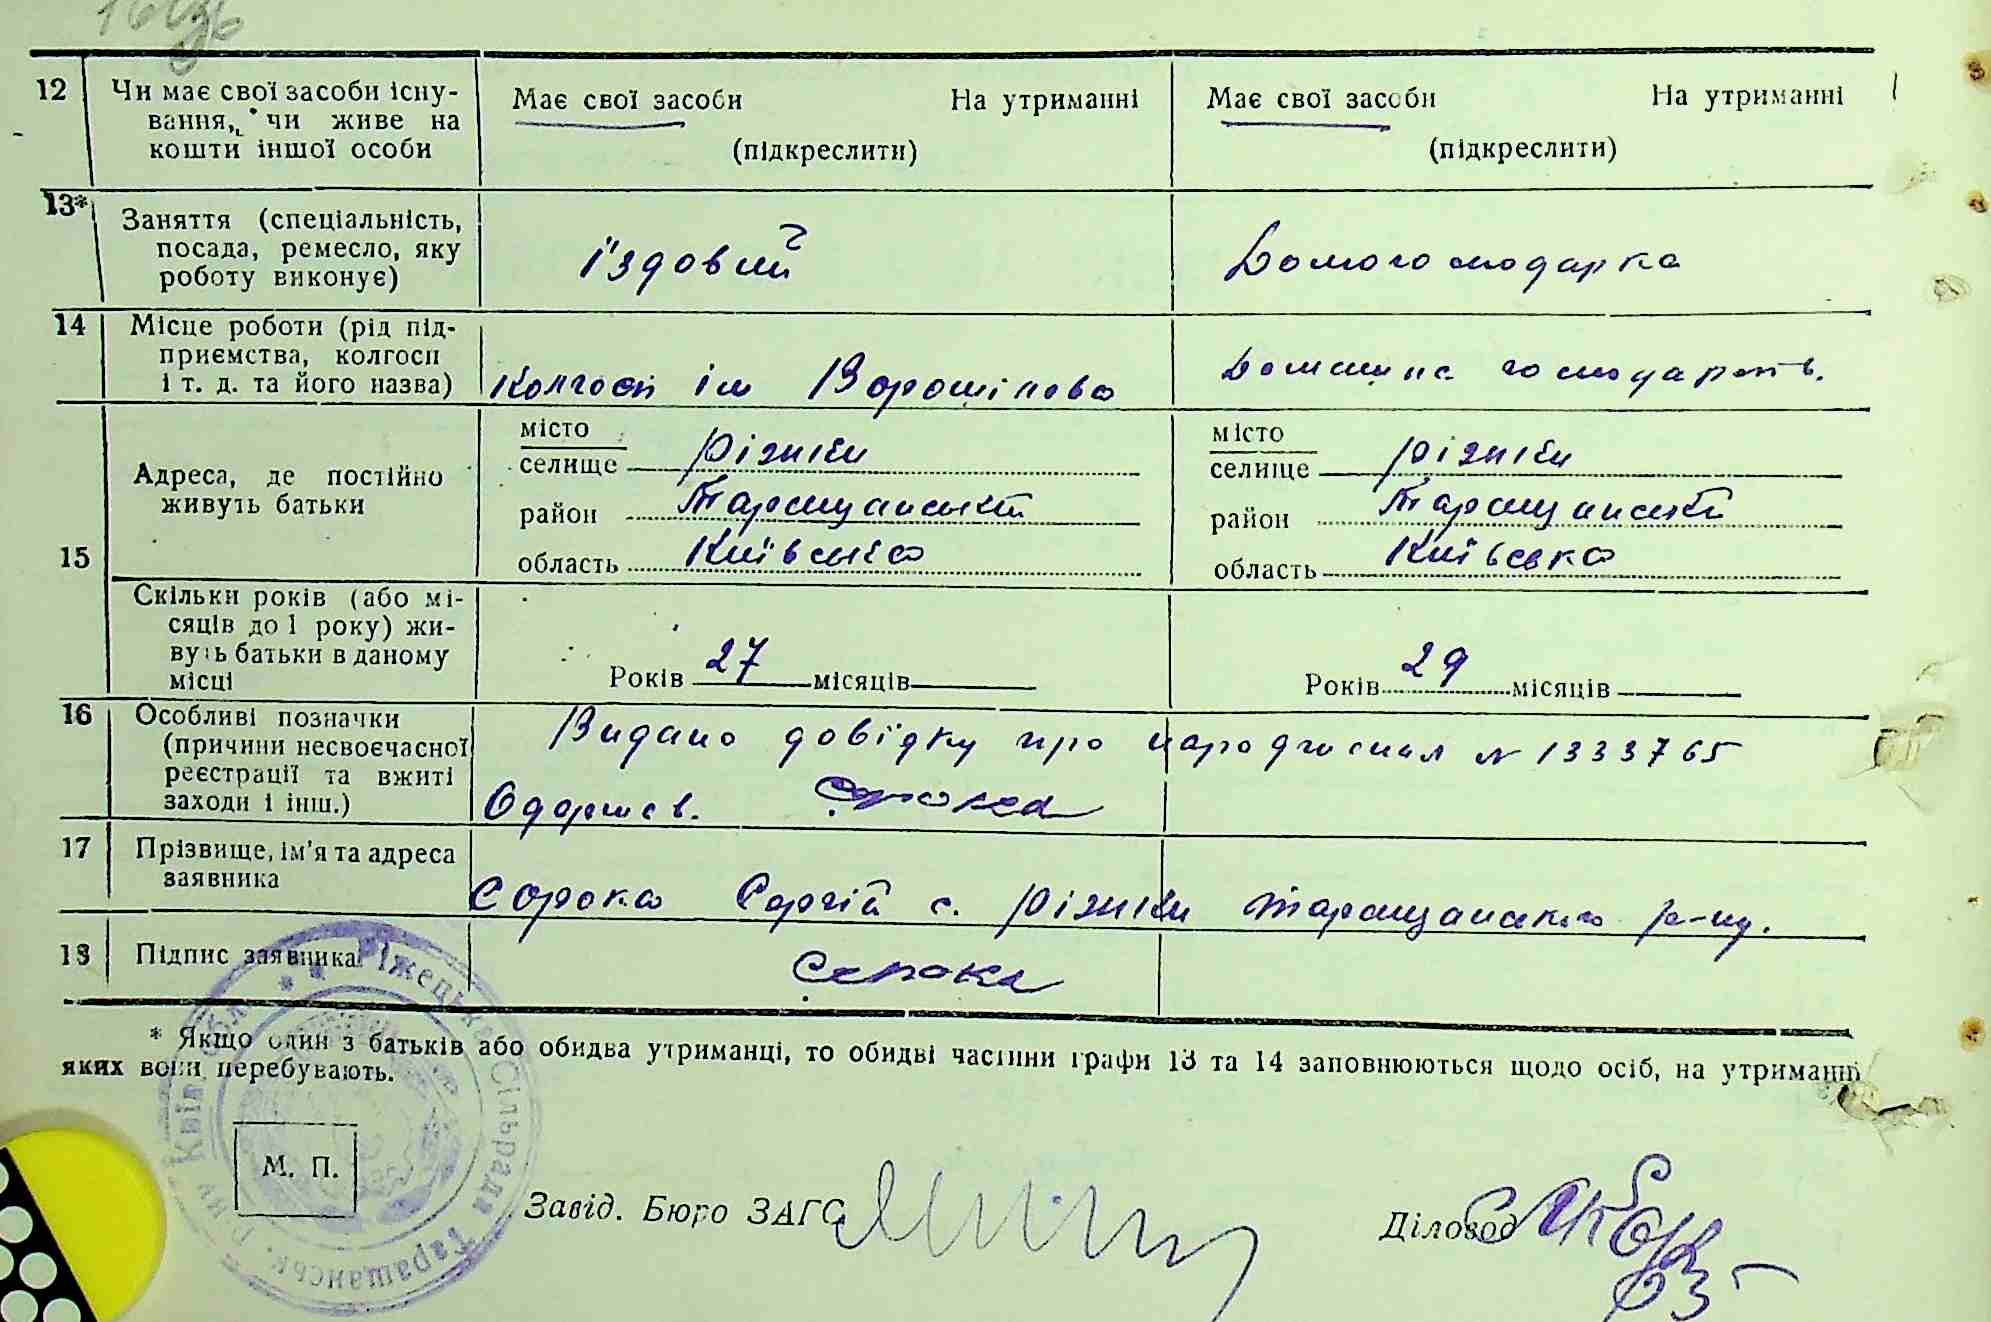 12 Чи має свої засоби існу-
вання, чи живе на
кошти іншої особи
Має свої засоби На утриманні
(підкреслити)
Має свої засоби На утриманні
(підкреслити)
13* Заняття (спеціальність,
посада, ремесло, яку
роботу виконує)
їздовий
Домогосподарка
14 Місце роботи (рід під-
приємства, колгосп
і т. д. та його назва)
Колгосп ім Ворошилова
Домашнє господарств.
15 Адреса, де постійно
живуть батьки
місто
селище Ріжки
район Таращанський
область Київська
місто
селище Ріжки
район Таращанський
область Київська
Скільки років (або мі-
сяців до 1 року) жи-
вуть батьки в даному
місці
Років 27 місяців
Років 29 місяців
16 Особливі позначки
(причини несвоєчасної
реєстрації та вжиті
заходи і інш.)
Видано довідку про народження № 1333765
Одержав. Сорока
17 Прізвище, ім'я та адреса
заявника
Сорока Сергій с. Ріжки Таращанського р-ну.
18 Підпис заявника
Сорока
* Якщо один з батьків або обидва утриманці, то обидві частини графи 13 та 14 заповнюються щодо осіб, на утриманні
яких вони перебувають.
Ріжецька Сільрада Таращанськ. р-ну Київ. обл.
М. П.
Завід. Бюро ЗАГС
Діловод